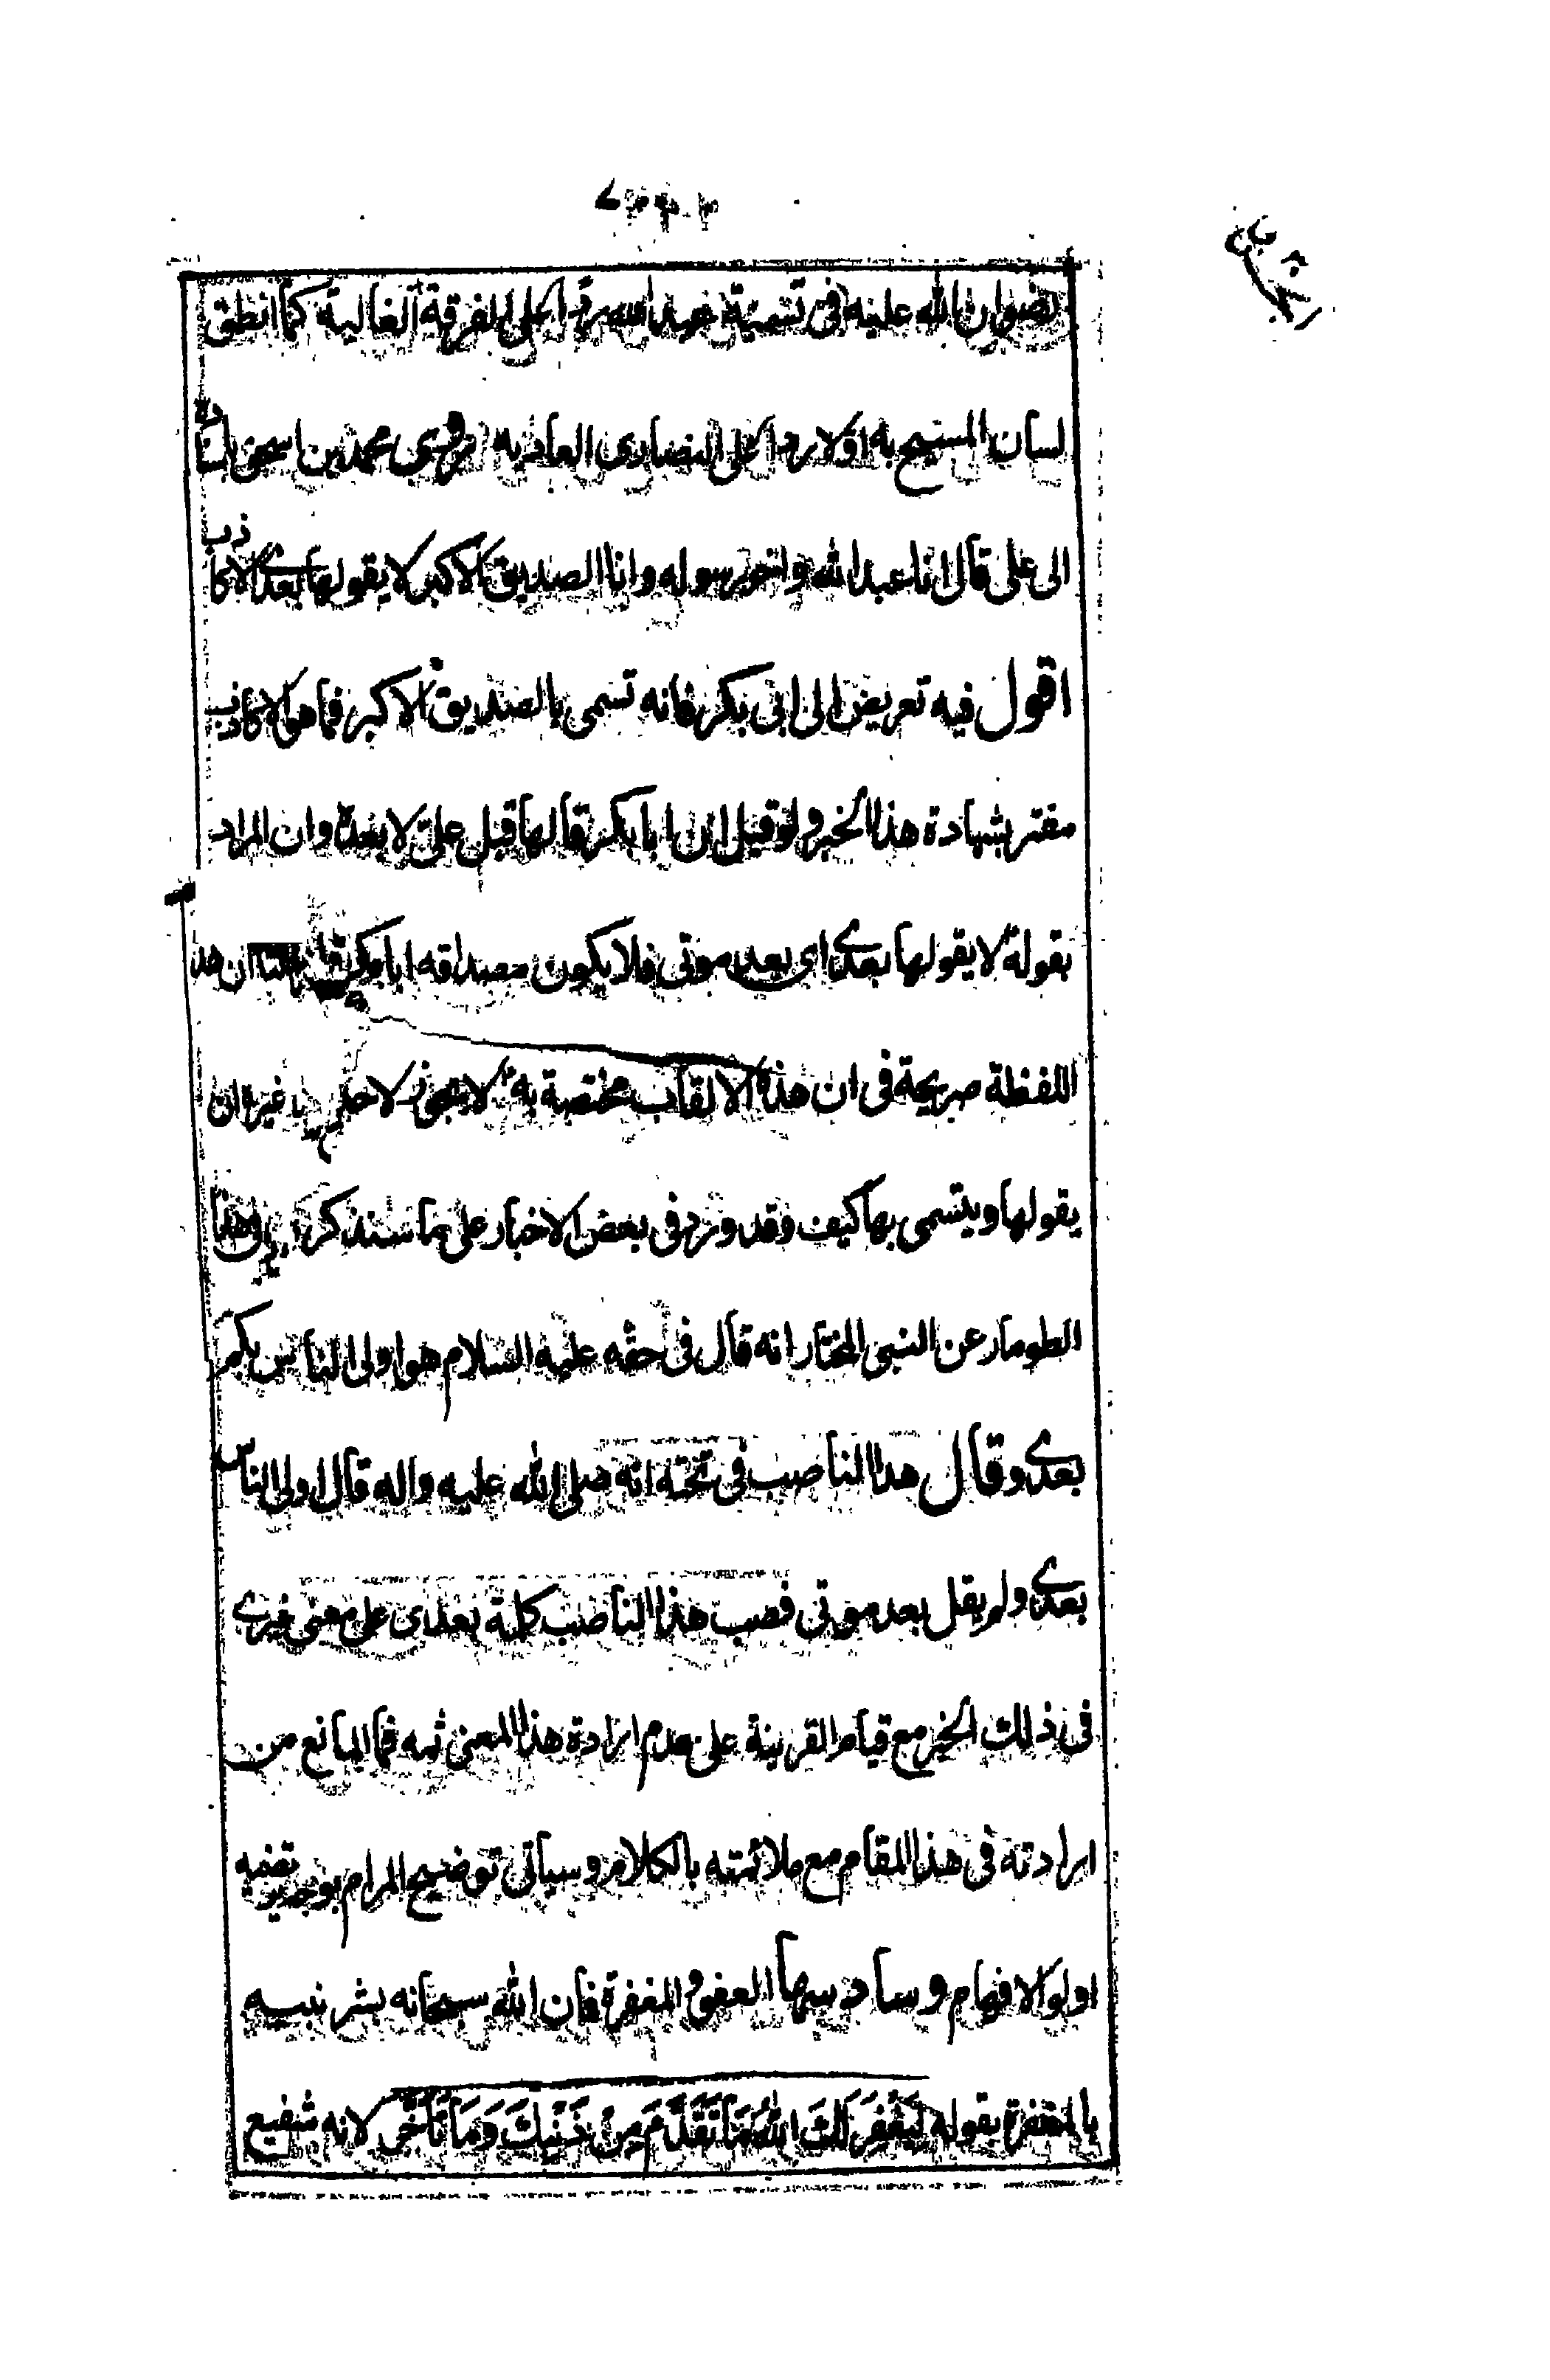 رضوان الله عليه فى تسمية عبد الله ردّا على الفرقة الغالية كما انطق
لسان المسيح به اولا ردا على النصارى العادية وروى محمد بن اسحق باسناده
الى على قال انا عبد الله واخو رسوله وانا الصديق الاكبر لا يقولها بعدى الا كاذب
اقول فيه تعريض الى ابى بكر فانه تسمى بالصديق الاكبر فما هو الا كاذب
مفتر بشهادة هذا الخبر ولو قيل ان ابا بكر قالها قبل على لا بعده وان المراد
بقوله لا يقولها بعدى اى بعد موتى فلا يكون مصداقه ابا بكر قلنا ان هذه
اللفظة صريحة فى ان هذه الالقاب مختصة به لا يجوز لاحد غيره ان
يقولها ويتسمى بها كيف وقد ورد فى بعض الاخبار على ما سنذكره فى هذا
الطومار عن النبى المختار انه قال فى حقه عليه السلام هو اولى الناس بكم
بعدى وقال هذا الناصب فى تحته انه صلى الله عليه واله قال اولى الناس
بعدى ولم يقل بعد موتى فصب هذا الناصب كلمة بعدى على معنى غيرى
فى ذلك الخبر مع قيام القرينة على عدم ارادة هذا المعنى ثمه فما المانع من
ارادته فى هذا المقام مع ملائمته بالكلام وسياتى توضيح المرام بوجه يرتضيه
اولو الافهام وسادسها العفو والمغفرة فان الله سبحانه بشر نبيه
بالمغفرة بقوله لِيَغْفِرَ لَكَ اللهُ مَا تَقَدَّمَ مِنْ ذَنْبِكَ وَمَا تَأَخَّرَ لانه شفيع